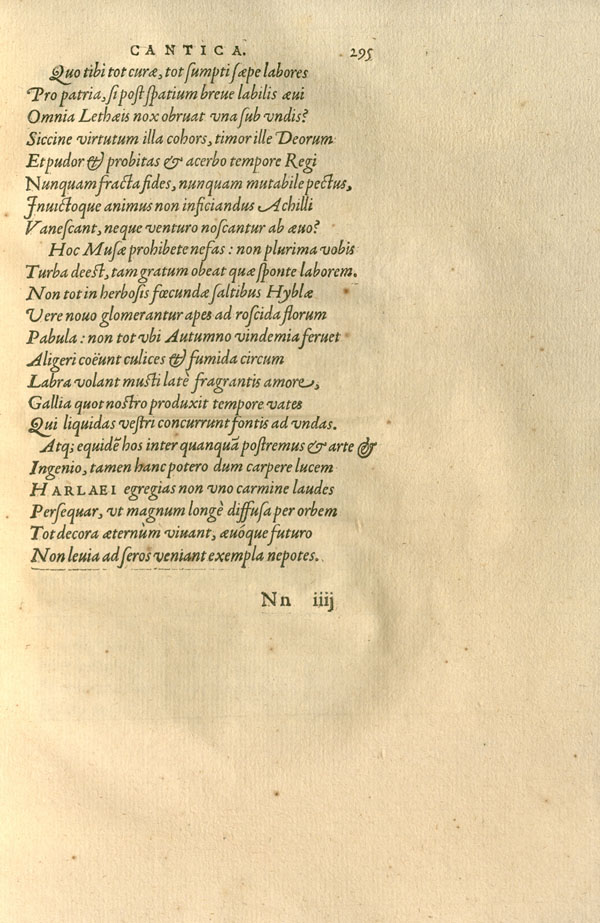 CANTICA. 295
Quo tibi tot curæ, tot ſumpti ſæpe labores
Pro patria, ſi poſt ſpatium breue labilis æui
Omnia Lethæis nox obruat vna ſub vndis?
Siccine virtutum illa cohors, timor ille Deorum
Et pudor & probitas & acerbo tempore Regi
Nunquam fracta fides, nunquam mutabile pectus,
Inuictoque animus non inficiandus Achilli
Vaneſcant, neque venturo noſcantur ab æuo?
Hoc Muſæ prohibete nefas: non plurima vobis
Turba deeſt, tam gratum obeat quæ ſponte laborem.
Non tot in herboſis fœcundæ ſaltibus Hyblæ
Vere nouo glomerantur apes ad roſcida florum
Pabula: non tot vbi Autumno vindemia feruet
Aligeri coëunt culices & fumida circum
Labra volant muſti latè fragrantis amore,
Gallia quot noſtro produxit tempore vates
Qui liquidas veſtri concurrunt fontis ad vndas.
Atq; equidē hos inter quanquā poſtremus & arte &
Ingenio, tamen hanc potero dum carpere lucem
HARLAEI egregias non vno carmine laudes
Perſequar, vt magnum longè diffuſa per orbem
Tot decora æternùm viuant, æuóque futuro
Non leuia ad ſeros veniant exempla nepotes.
Nn iiij